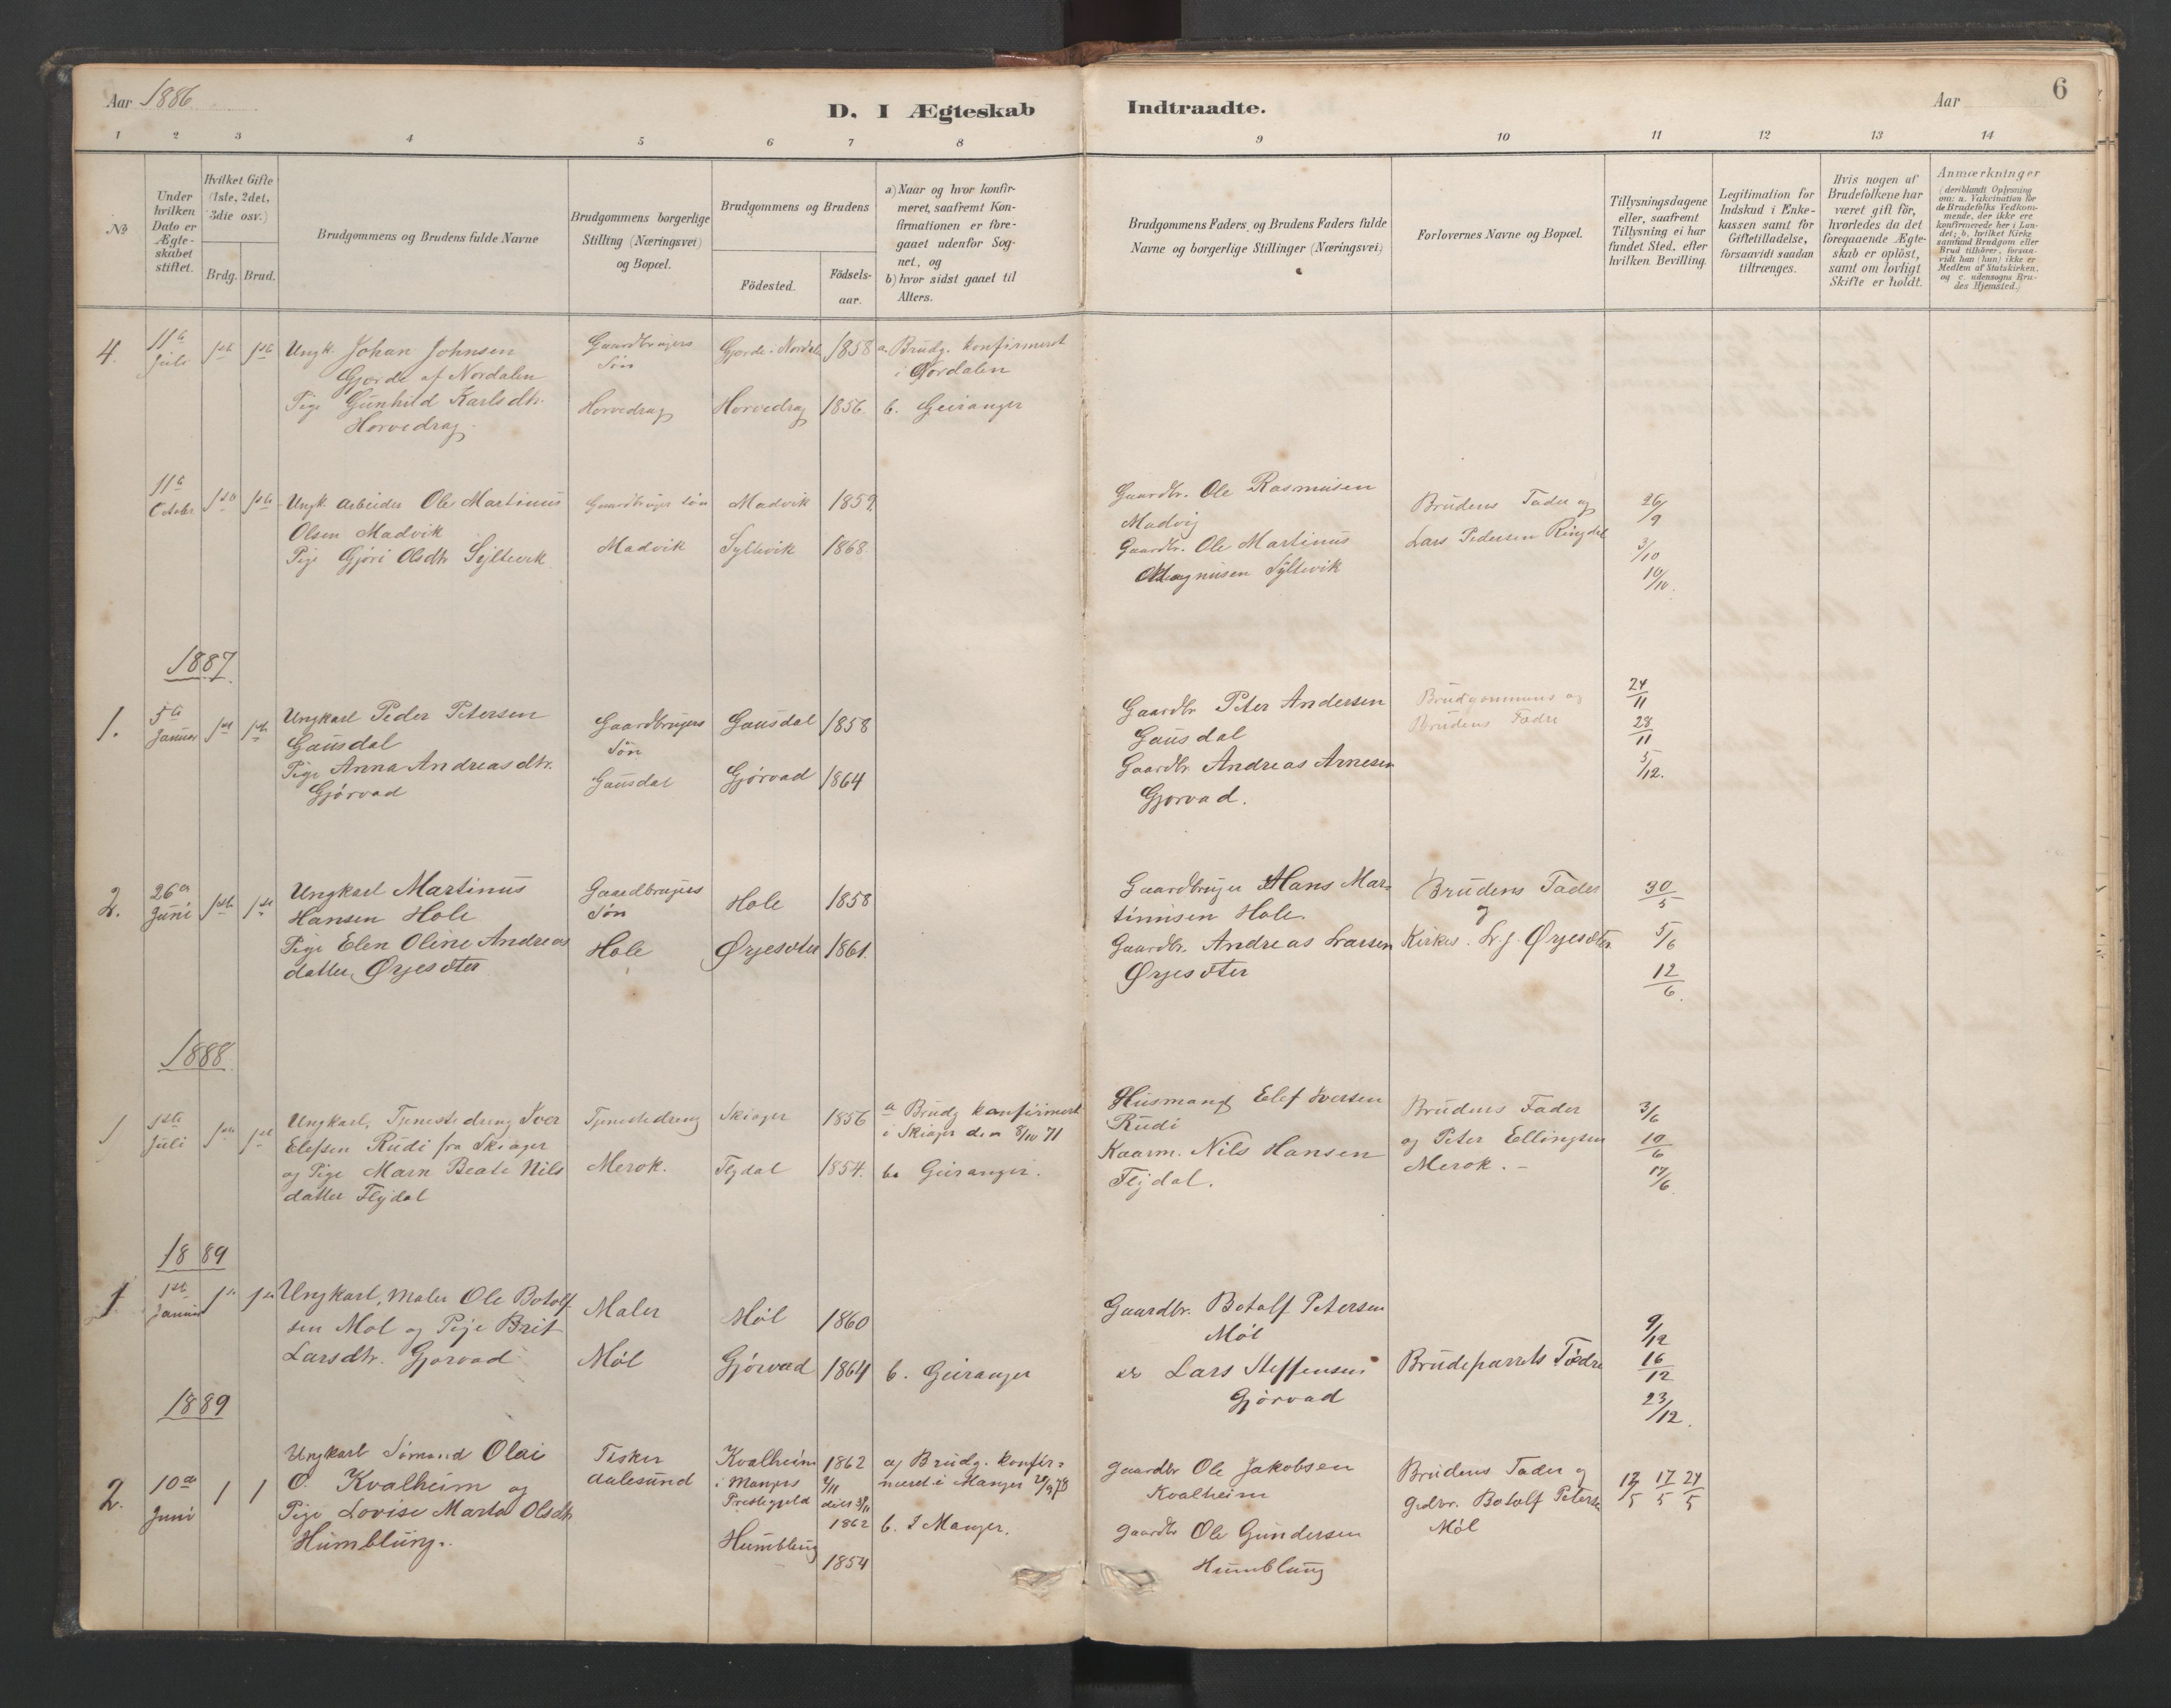 Aar 1886
D. I Ægteskab Indtraadte.
Aar
6
1 2 3 4 5 6 7 8 9 10 11 12 13 14
No
Under hvilken Dato er Ægteskabet stiftet.
Hvilket Gifte (1ste, 2det, 3die osv.)
Brdg. Brud.
Brudgommens og Brudens fulde Navne
Brudgommens borgerlige Stilling (Næringsvei) og Bopæl.
Brudgommens og Brudens
Födested.
Födselsaar.
a) Naar og hvor konfirmeret, saafremt Konfirmationen er foregaaet udenfor Sognet, og
b) hvor sidst gaaet til Alters.
Brudgommens Faders og Brudens Faders fulde Navne og borgerlige Stillinger (Næringsvei)
Forlovernes Navne og Bopæl.
Tillysningsdagene eller, saafremt Tillysning ei har fundet Sted, efter hvilken Bevilling.
Legitimation for Indskud i Enkekassen samt for Giftetilladelse, forsaavidt saadan tiltrænges.
Hvis nogen af Brudefolkene har været gift för, hvorledes da det foregaaende Ægteskab er oplöst, samt om lovligt Skifte er holdt.
Anmærkninger
(deriblandt Oplysning om: a. Vakcination for de Brudefolks Vedkommende, der ikke ere konfirmerede her i Landet; b. hvilket Kirkesamfund Brudgom eller Brud tilhörer, forsaavidt han (hun) ikke er Medlem af Statskirken, og c. udensogns Brudes Hjemsted.)
4. 11te Juli 1ste 1ste Ungk. Johan Johnsen
Gjærde af Nordalen
Pige Gunhild Karlsdtr.
Horvedrag.
Gaardbrugers Søn
Horvedrag
Gjærde i Nordal 1858
Horvedrag 1856.
a. Brudg. konfirmeret
i Nordalen
b. Geiranger
11te October 1ste 1ste Ungk. Arbeider Ole Martinus
Olsen Madvik
Pige Gjøri Olsdtr Syltevik
Gaardbruger Søn
Madvik
Madvik 1859
Syltevik 1868.
Gaardbr. Ole Rasmusen
Madvig
Gaardbr. Ole Martinus
Magnusen Syltevik
Brudens Fader og
Lars Pedersen Ringdal
26/9
3/10
10/10.
1887
1. 5te Januar 1ste 1ste Ungkarl Peder Petersen
Gausdal
Pige Anna Andreasdtr.
Gjørvad
Gaardbrugers
Søn
Gausdal
Gausdal 1858
Gjørvad 1864
Gaardbr Peter Andersen
Gausdal
Gaardbr. Andreas Arnesen
Gjorvad.
Brudgommens og
Brudens Fædre
24/11
28/11
5/12.
2. 26de Juni 1ste 1ste Ungkarl Martinus
Hansen Hole
Pige Elen Oline Andreas
datter Ørjesæter
Gaardbrugers
Søn
Hole
Hole 1858
Ørjesæter 1861.
Gaardbruger Hans Mar-
tinusen Hole.
Gaardbr. Andreas Larsen
Ørjesæter
Brudens Fader
og
Kirkes. L. J. Ørjesæter
30/5
5/6
12/6.
1888
1 1ste Juli 1ste 1ste Ungkarl, Tjenestedreng Iver
Elefsen Rudi fra Skiager
og Pige Marn Beate Nils
datter Flydal
Tjenestedreng
Merok.
Skiager 1856
Flydal 1854.
a Brudg konfirmert
i Skiager den 8/10 71
b. Geiranger.
Husmand Elef Iversen
Rudi
Kaarm. Nils Hansen
Flydal.
Brudens Fader
og Peter Ellingsen
Merok. -
3/6
10/6
17/6
1889
1 1ste Januar 1ste 1ste Ungkarl, Maler Ole Botolf
sen Møl og Pige Brit
Larsdtr. Gjørvad
Maler
Møl
Møl 1860
Gjørvad 1864
b. Geiranger
Gaardbr. Botolf Petersen
Møl
do Lars Steffensen
Gjørvad
Brudeparrets Fædre
9/12
16/12
23/12.
1889
2. 10de Juni 1 1 Ungkarl Sømand Olai
O. Kvalheim og
Pige Lovise Marta Olsdtr
Humblung.
Fisker
Aalesund
Kvalheim
i Mangers
Prestegjeld
1862
Humblung 1854
a) Brudg. konfir-
meret i Manger 29/9 78
b. I Manger.
Gaardbr Ole Jakobsen
Kvalheim
Gaardbr Ole Gundersen
Humblung
Brudens Fader og
Grdbr. Botolf Peterse
Møl
12/5 17/5 24/5